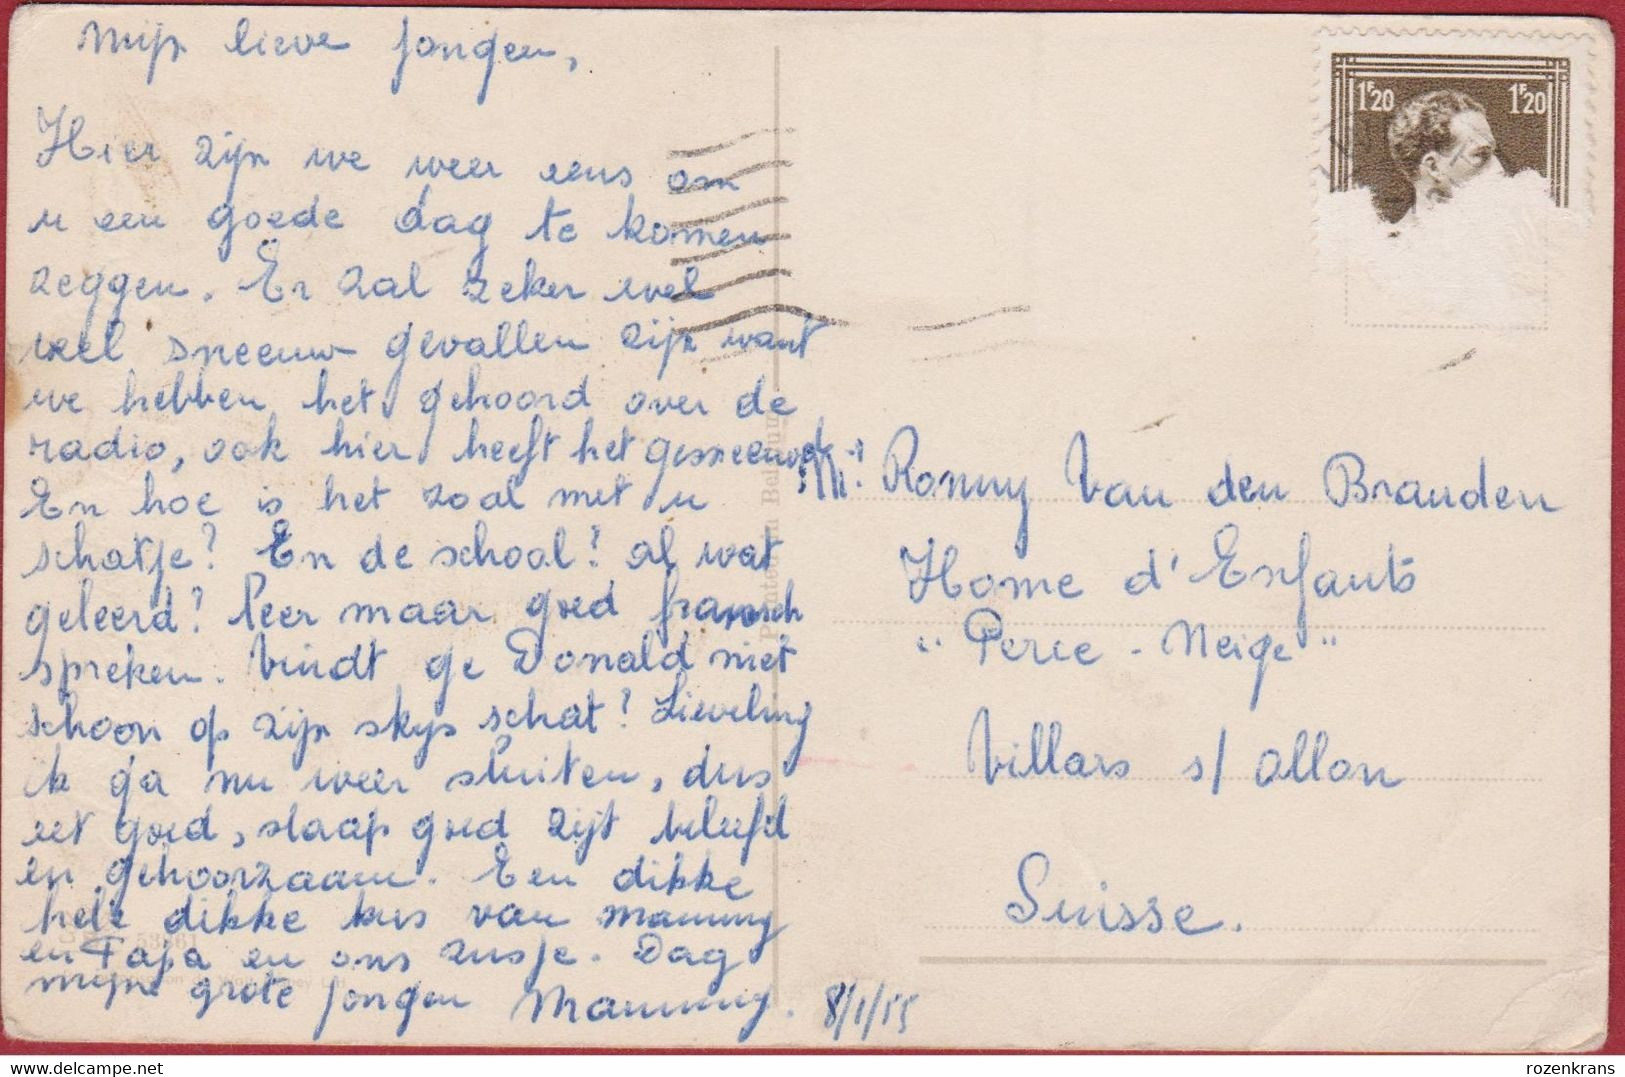 Mijn lieve jongen,
Hier zijn we weer eens om
u een goede dag te komen
zeggen. Er zal zeker wel
veel sneeuw gevallen zijn want
we hebben het gehoord over de
radio, ook hier heeft het gesneeuwd.
En hoe is het zoal met u
schatje? En de school? al wat
geleerd? Leer maar goed fransch
spreken. Vindt ge Donald niet
schoon op zijn skys schat? Lieveling
ik ga nu weer sluiten, dus
eet goed, slaap goed zijt beleefd
en gehoorzaam. Een dikke
hele dikke kus van Mammy
en Papa en ons zusje. Dag
mijne grote jongen Mammy.
8/1/55
1F20 1F20
Ronny Van den Branden
Home d'Enfants
"Perce-Neige"
Villars s/ Ollon
Suisse.
Printed in Belgium
53361
rozenkrans
delcampe.net